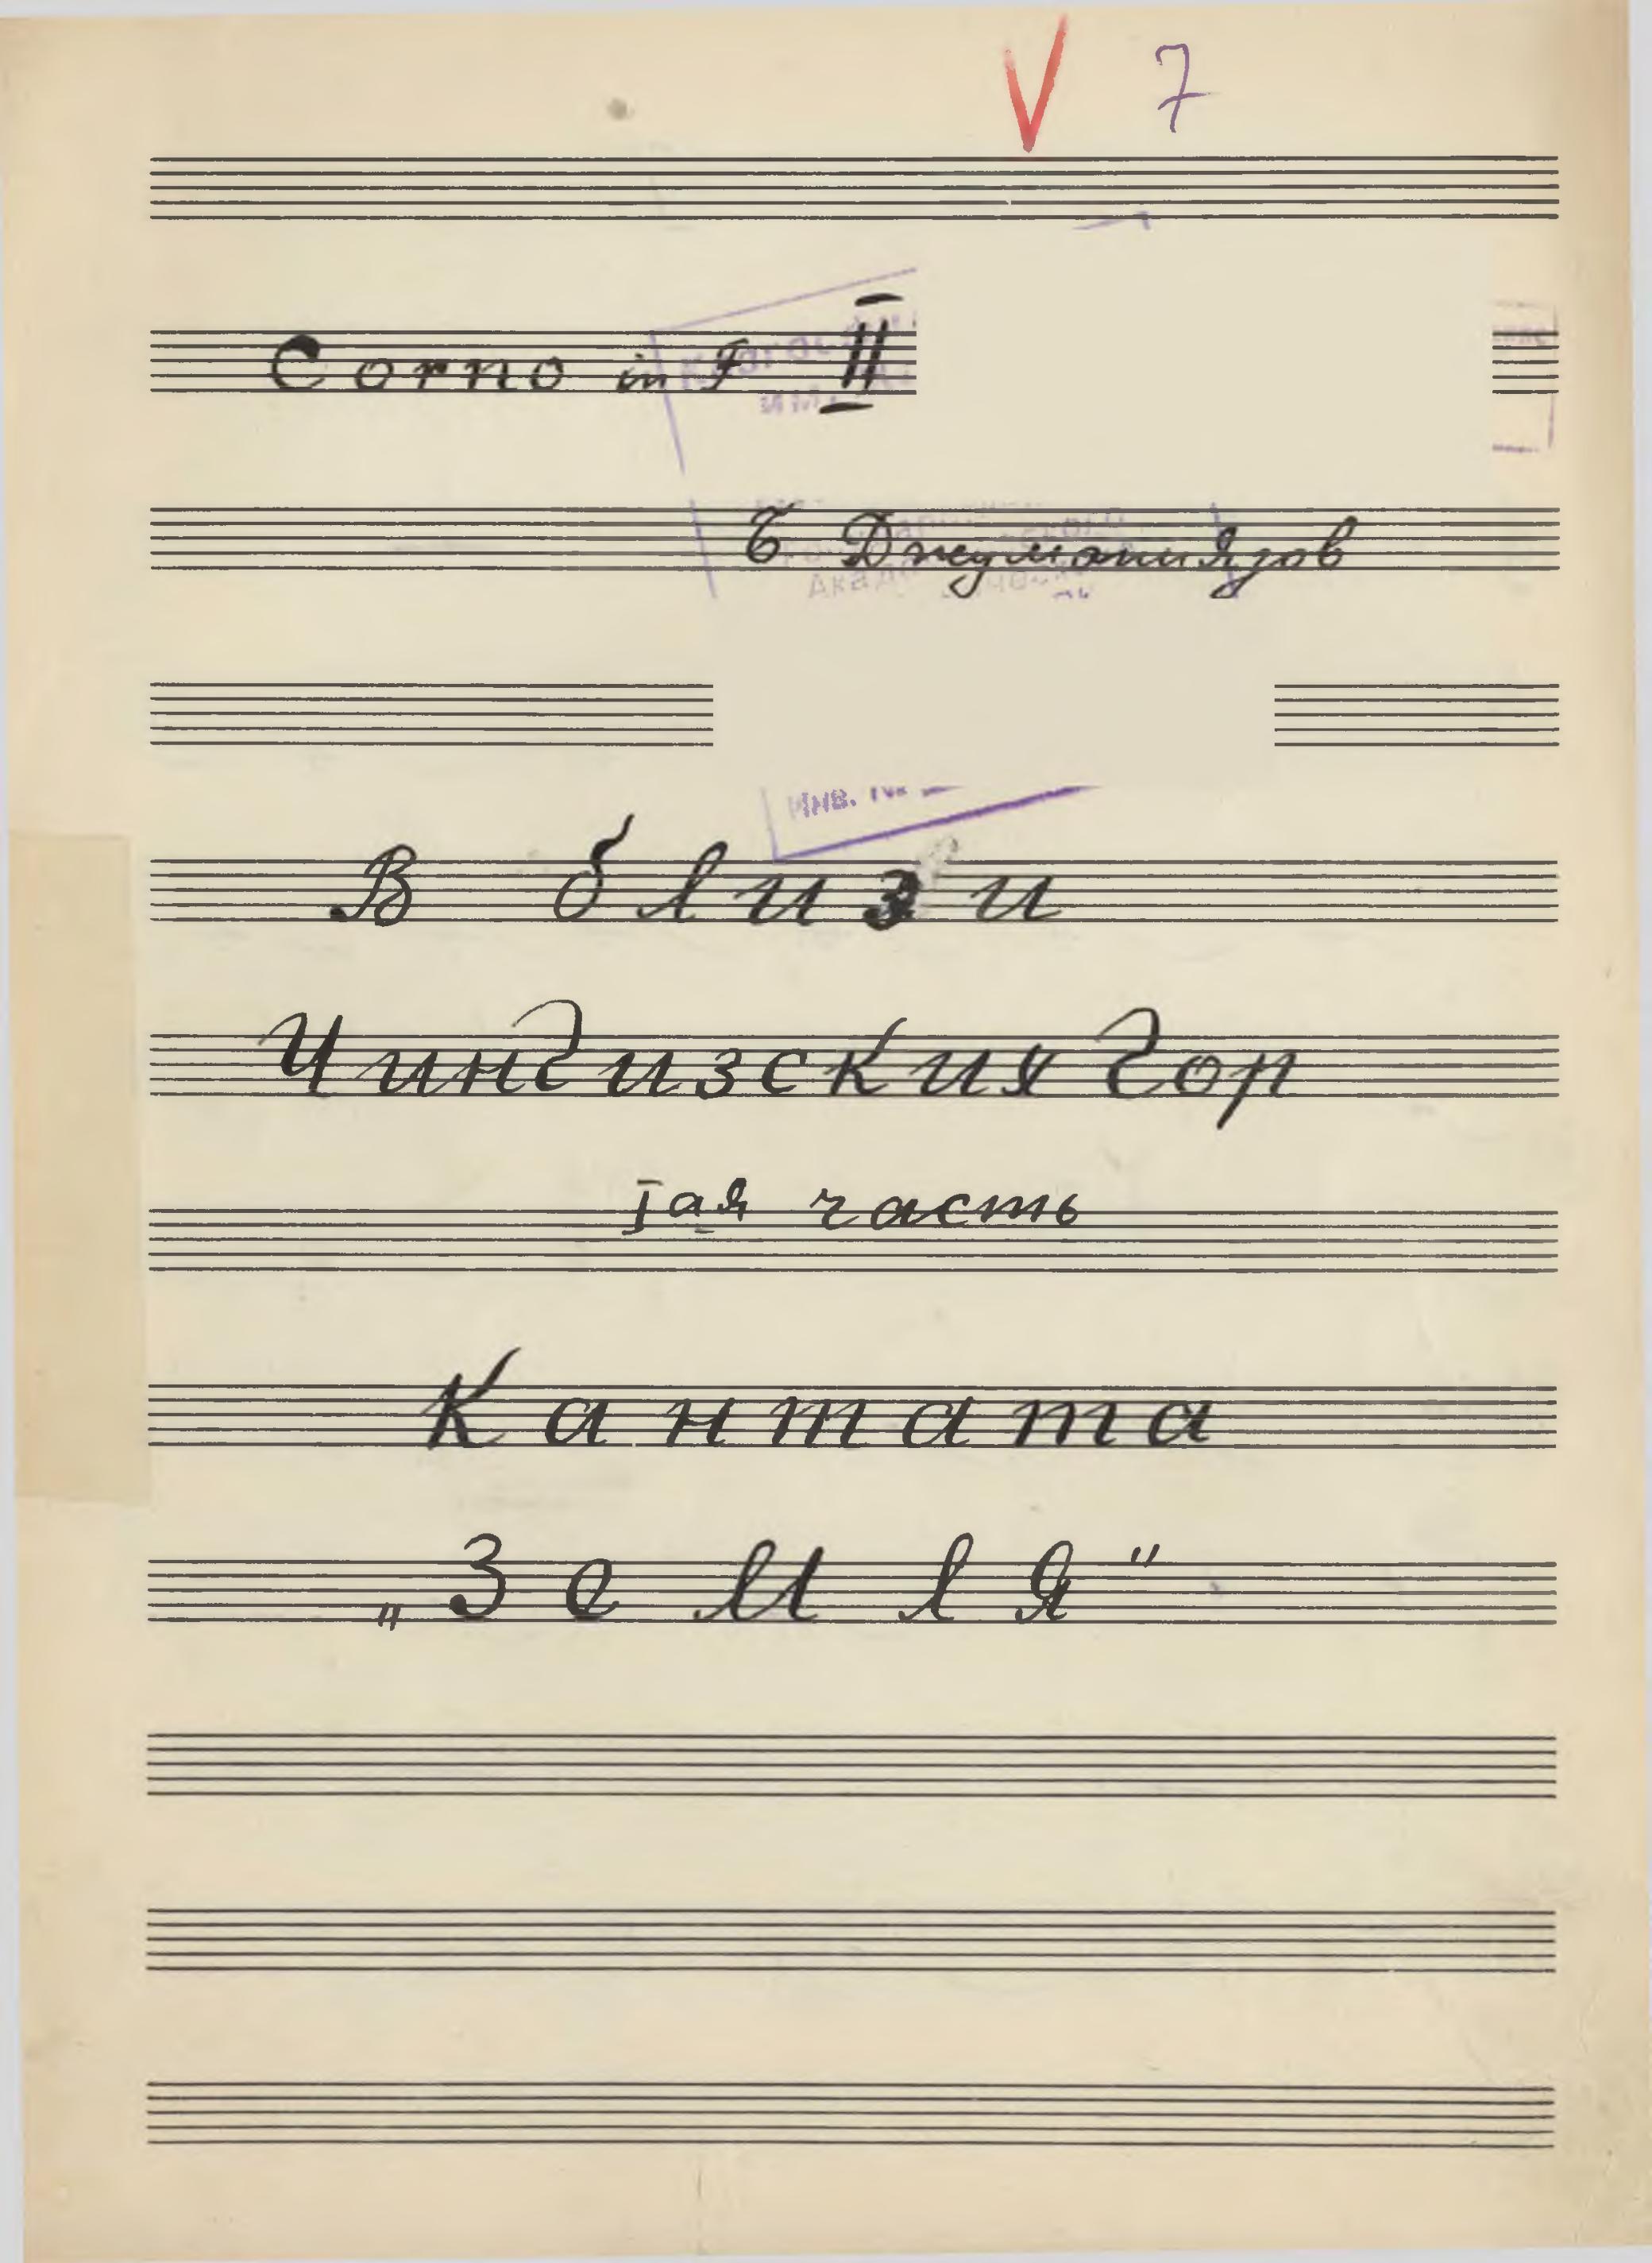 V 7
Corno in F II
Б Джуманиязов
инв. №
Вблизи
Чингизских гор
Iая часть
Кантата
„Земля"